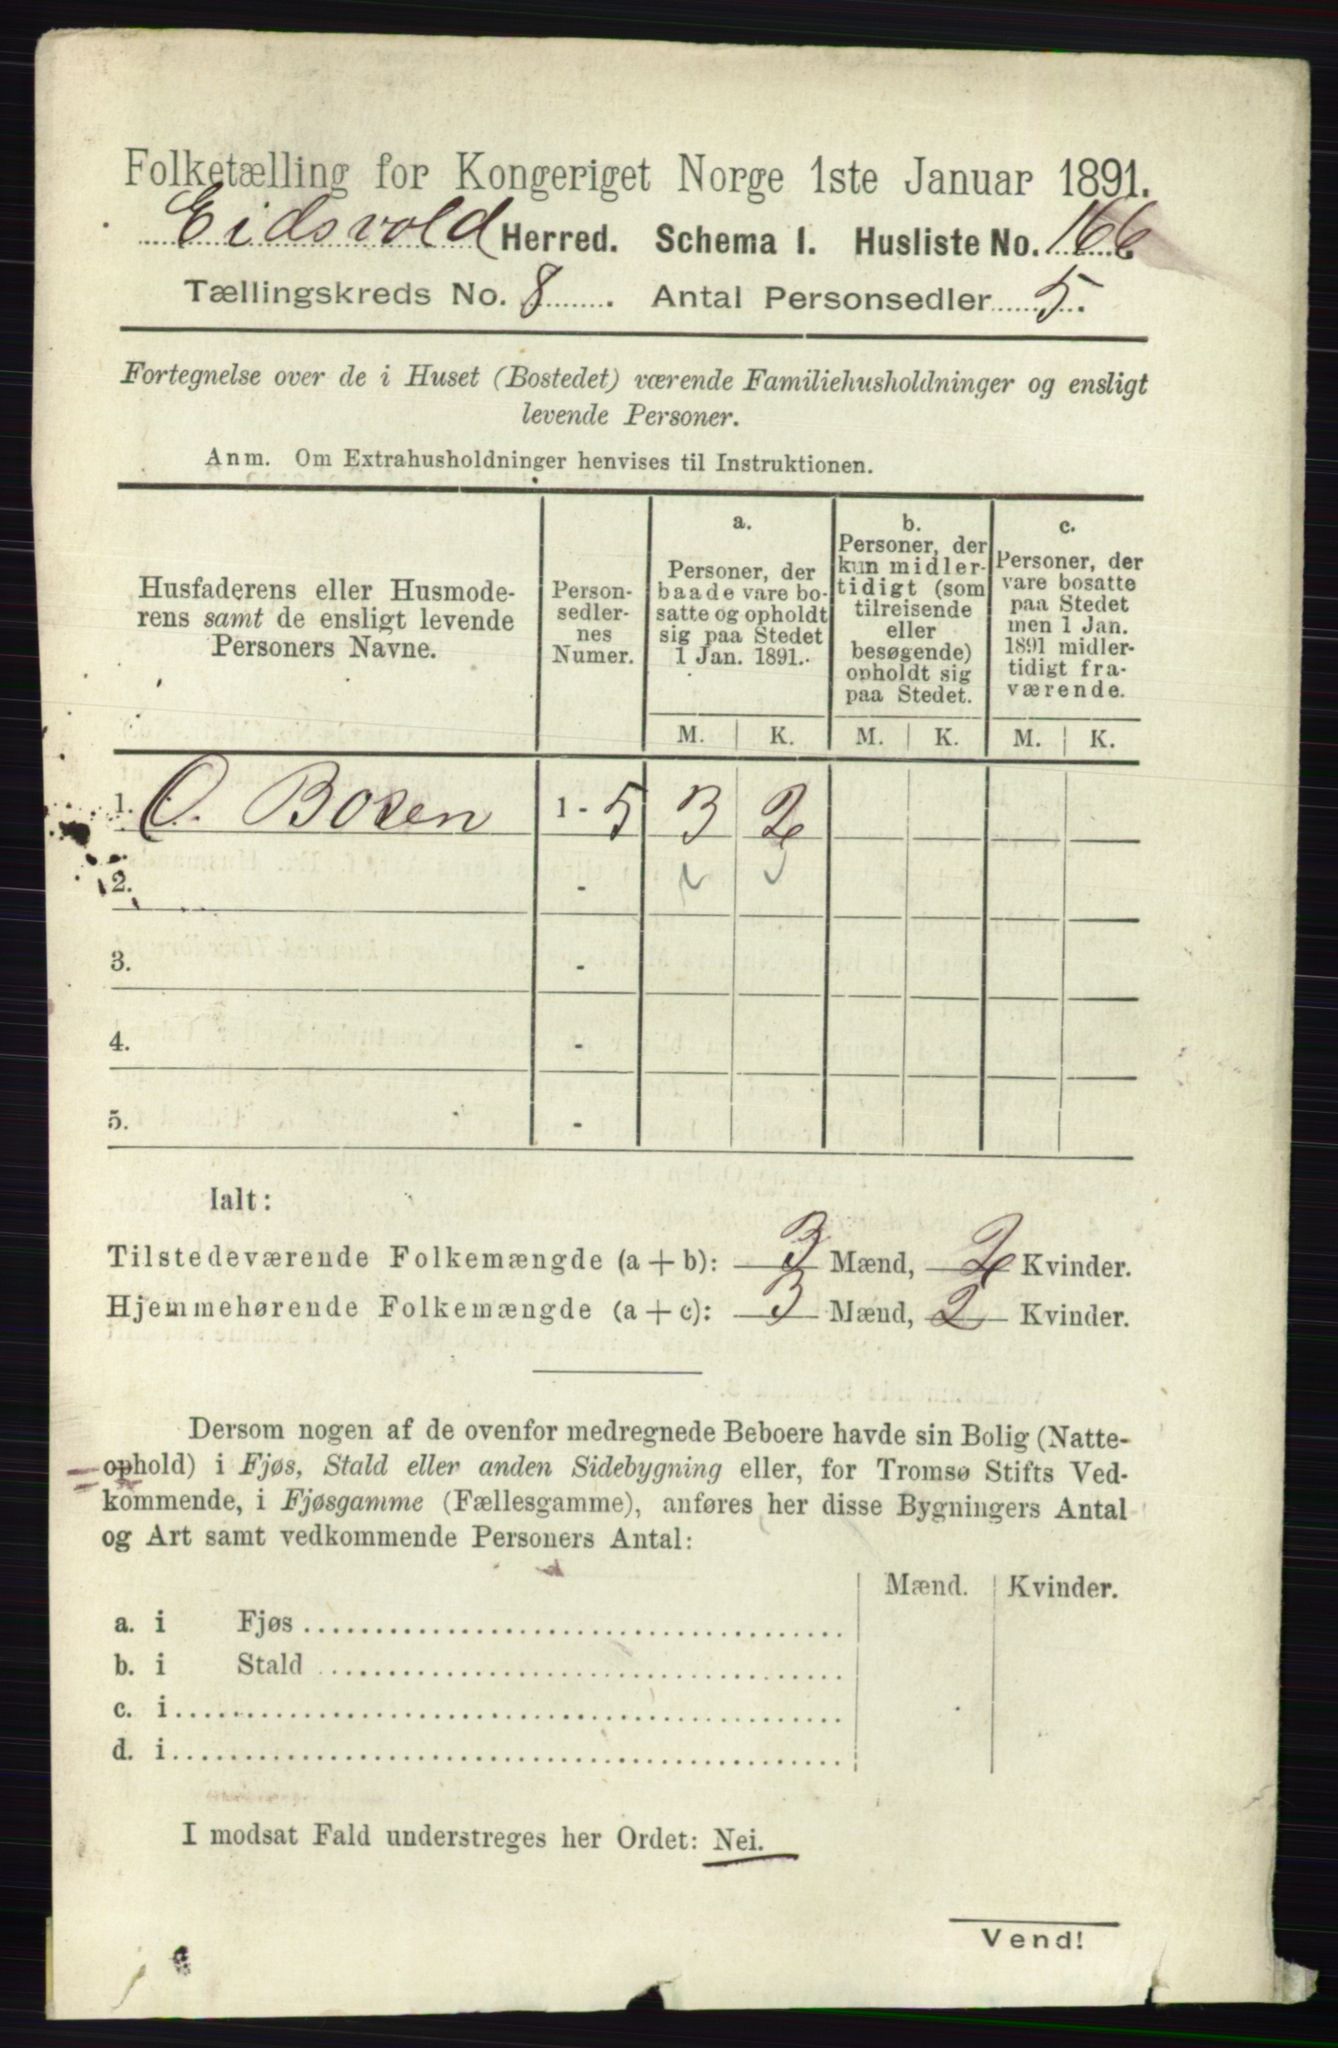 Folketælling for Kongeriget Norge 1ste Januar 1891.
Eidsvold Herred. Schema I. Husliste No. 166
Tællingskreds No. 8 . Antal Personsedler 5.
Fortegnelse over de i Huset (Bostedet) værende Familiehusholdninger og ensligt
levende Personer.
Anm. Om Extrahusholdninger henvises til Instruktionen.
Husfaderens eller Husmode-
rens samt de ensligt levende
Personers Navne.
Person-
sedler-
nes
Numer.
a.
Personer, der
baade vare bo-
satte og opholdt
sig paa Stedet
1 Jan. 1891.
b.
Personer, der
kun midler-
tidigt (som
tilreisende
eller
besøgende)
opholdt sig
paa Stedet.
c.
Personer, der
vare bosatte
paa Stedet
men 1 Jan.
1891 midler-
tidigt fra-
værende.
M. K. M. K. M. K.
1. O. Bosen 1 - 5 3 2
2. -
3. -
4. -
5. -
Ialt:
Tilstedeværende Folkemængde (a + b): 3 Mænd, 2 Kvinder.
Hjemmehørende Folkemængde (a + c): 3 Mænd, 2 Kvinder.
Dersom nogen af de ovenfor medregnede Beboere havde sin Bolig (Natte-
ophold) i Fjøs, Stald eller anden Sidebygning eller, for Tromsø Stifts Ved-
kommende, i Fjøsgamme (Fællesgamme), anføres her disse Bygningers Antal
og Art samt vedkommende Personers Antal:
Mænd. Kvinder.
a. i Fjøs
b. i Stald
c. i
d. i
I modsat Fald understreges her Ordet: Nei.
Vend!